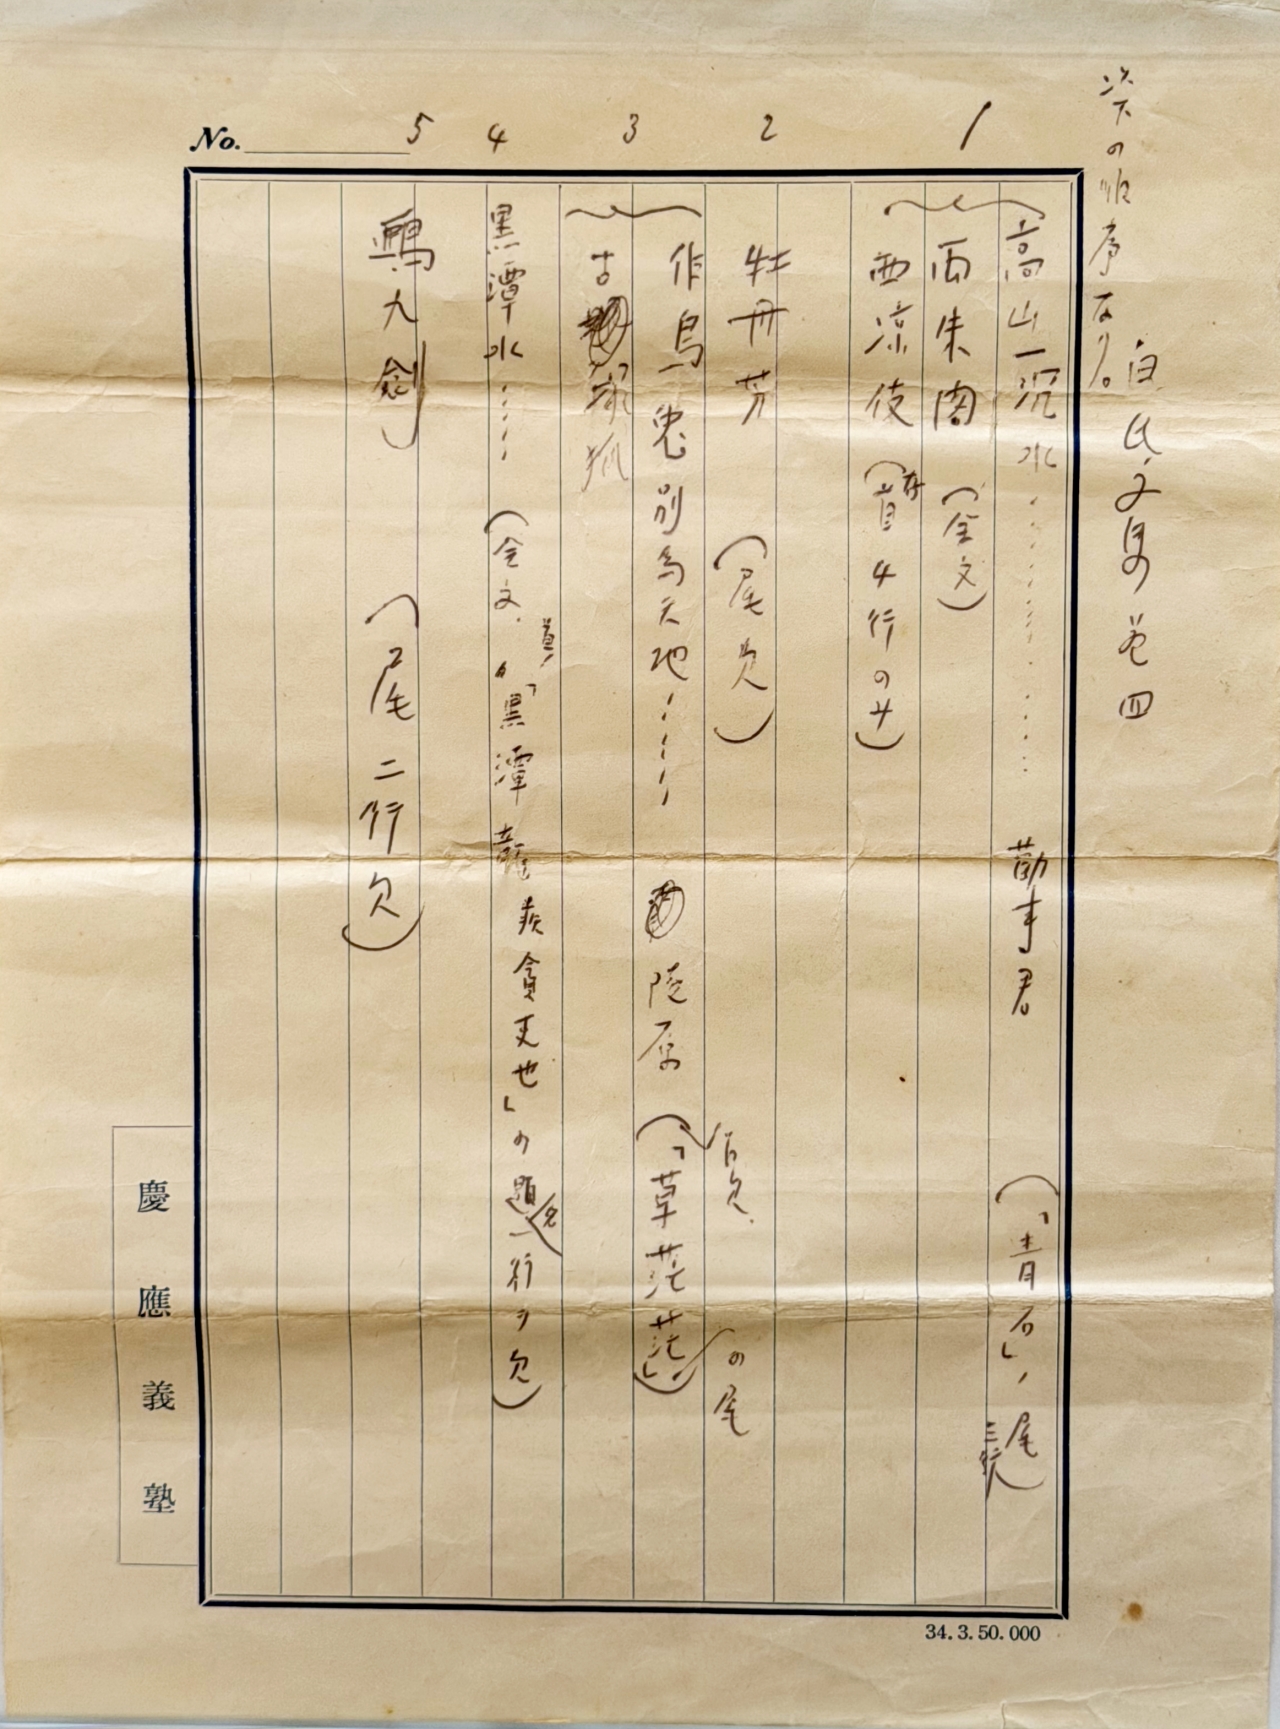 次の順序なり。
白氏文集巻四
No.
1
2
3
4
5
高山一沉水…………勤事君(「青石」ノ尾三行欠)
両朱閣(全文)
西凉伎(首4行のみ存)
牡丹芳(尾欠)
作鳥一兎別為天地……陵原(「草茫茫」の尾
百欠.
古冢狐
黒潭水……(全文.但首「黒潭龍疾貪吏也」の題名一行ヲ欠)
鴉九剣(尾二行欠)
慶應義塾
34.3.50.000